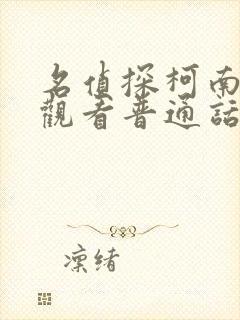 名偵探柯南
觀看普通話
凜緒